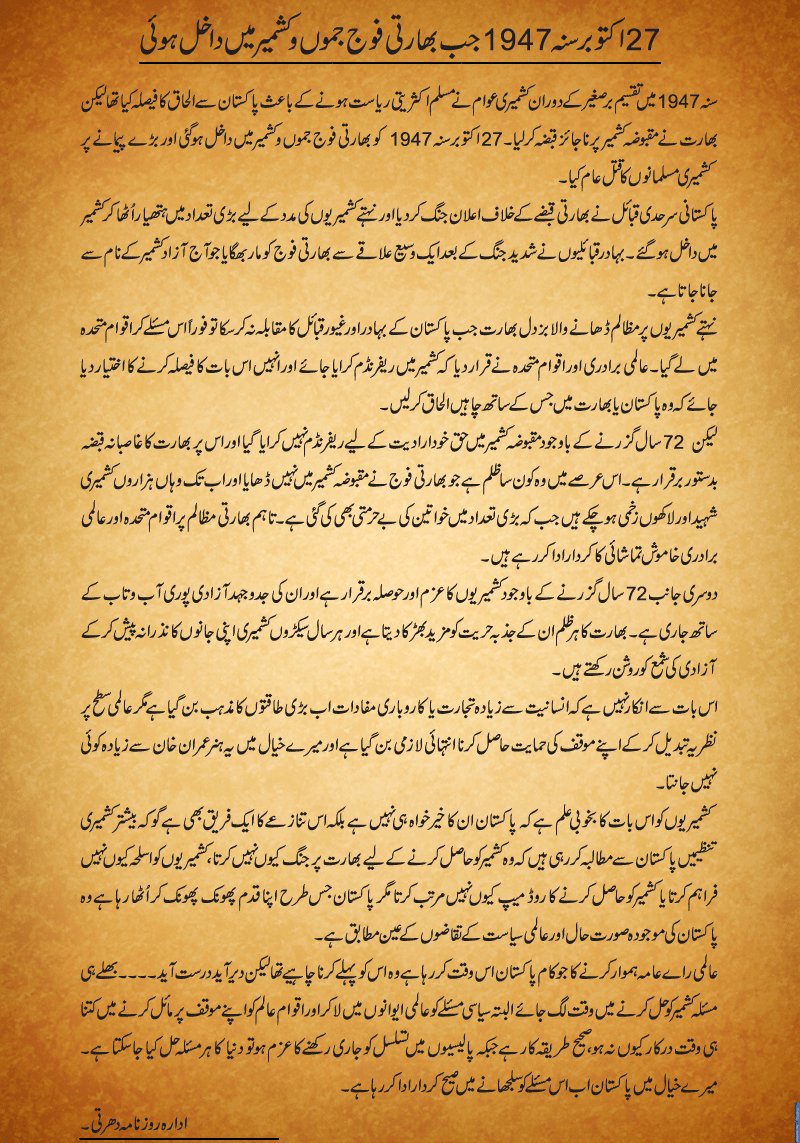 27اکتوبرسنہ1947 جب بھارتی فوج جموں وکشمیرمیں داخل ہوئی
سنہ1947 میں تقسیم برصغیرکے دوران کشمیری عوام نے مسلم اکثریتی ریاست ہونے کے باعث پاکستان سے الحاق کا فیصلہ کیا تھا لیکن
بھارت نے مقبوضہ کشمیر پر ناجائز قبضہ کرلیا۔27اکتوبرسنہ1947 کو بھارتی فوج جموں وکشمیرمیں داخل ہوگئی اور بڑے پیمانے پر
کشمیری مسلمانوں کا قتل عام کیا۔
پاکستانی سرحدی قبائل نے بھارتی قبضے کے خلاف اعلان جنگ کردیا اور نہتے کشمیریوں کی مدد کے لیے بڑی تعداد میں ہتھیار اُٹھا کر کشمیر
میں داخل ہوگئے۔ بہادر قبائلیوں نے شدید جنگ کے بعد ایک وسیع علاقے سے بھارتی فوج کو مار بھگایا جو آج آزاد کشمیر کے نام سے
جانا جاتا ہے۔
نہتے کشمیریوں پر مظالم ڈھانے والا بزدل بھارت جب پاکستان کے بہادر اور غیور قبائل کا مقابلہ نہ کرسکا تو فوراً اس مسئلے کر اقوام متحدہ
میں لے گیا۔ عالمی برادری اور اقوام متحدہ نے قرار دیا کہ کشمیر میں ریفرنڈم کرایا جائے اور انہیں اس بات کا فیصلہ کرنے کا اختیار دیا
جائے کہ وہ پاکستان یا بھارت میں جس کے ساتھ چاہیں الحاق کرلیں۔
لیکن 72 سال گزرنے کے باوجود مقبوضہ کشمیر میں حق خودارادیت کے لیے ریفرنڈم نہیں کرایا گیا اور اس پر بھارت کا غاصبانہ قبضہ
بدستور برقرار ہے۔ اس عرصے میں وہ کون سا ظلم ہے جو بھارتی فوج نے مقبوضہ کشمیر میں نہیں ڈھایا اور اب تک وہاں ہزاروں کشمیری
شہید اور لاکھوں زخمی ہوچکے ہیں جب کہ بڑی تعداد میں خواتین کی بے حرمتی بھی کی گئی ہے۔ تاہم بھارتی مظالم پر اقوام متحدہ اور عالمی
برادری خاموش تماشائی کا کردار ادا کررہے ہیں۔
دوسری جانب 72 سال گزرنے کے باوجود کشمیریوں کا عزم اور حوصلہ برقرار ہے اور ان کی جدوجہد آزادی پوری آب و تاب کے
ساتھ جاری ہے۔ بھارت کا ہر ظلم ان کے جذبہ حریت کو مزید بھڑکا دیتا ہے اور ہر سال سیکڑوں کشمیری اپنی جانوں کا نذرانہ پیش کرکے
آزادی کی شمع کو روشن رکھتے ہیں۔
اس بات سے انکار نہیں ہے کہ انسانیت سے زیادہ تجارت یا کاروباری مفادات اب بڑی طاقتوں کا مذہب بن گیا ہے مگر عالمی سطح پر
نظریہ تبدیل کرکے اپنے موقف کی حمایت حاصل کرنا انتہائی لازمی بن گیا ہے اور میرے خیال میں یہ ہنر عمران خان سے زیادہ کوئی
نہیں جانتا۔
کشمیریوں کو اس بات کا بخوبی علم ہے کہ پاکستان ان کا خیر خواہ ہی نہیں ہے بلکہ اس تنازعے کا ایک فریق بھی ہے گو کہ بیشتر کشمیری
تنظیمیں پاکستان سے مطالبہ کررہی ہیں کہ وہ کشمیر کو حاصل کرنے کے لیے بھارت پر جنگ کیوں نہیں کرتا، کشمیریوں کو اسلحہ کیوں نہیں
فراہم کرتا یا کشمیر کو حاصل کرنے کا روڈ میپ کیوں نہیں مرتب کرتا مگر پاکستان جس طرح اپنا قدم پھونک پھونک کر اُٹھا رہا ہے وہ
پاکستان کی موجودہ صورت حال اور عالمی سیاست کے تقاضوں کے عین مطابق ہے۔
عالمی رائے عامہ ہموار کرنے کا جو کام پاکستان اس وقت کررہا ہے وہ اس کو پہلے کرنا چاہیے تھا لیکن دیر آید درست آید۔۔۔۔ بھلے ہی
مسئلہ کشمیر کو حل کرنے میں وقت لگ جائے البتہ سیاسی مسئلے کو عالمی ایوانوں میں لاکر اور اقوام عالم کو اپنے موقف پر مائل کرنے میں کتنا
ہی وقت درکار کیوں نہ ہو، صحیح طریقہ کار ہے جبکہ پالیسیوں میں تسلسل کو جاری رکھنے کا عزم ہو تو دنیا کا ہر مسئلہ حل کیا جاسکتا ہے۔
میرے خیال میں پاکستان اب اس مسئلے کو سلجھانے میں صحیح کردار ادا کررہا ہے۔
ادارہ روزنامہ دھرتی۔